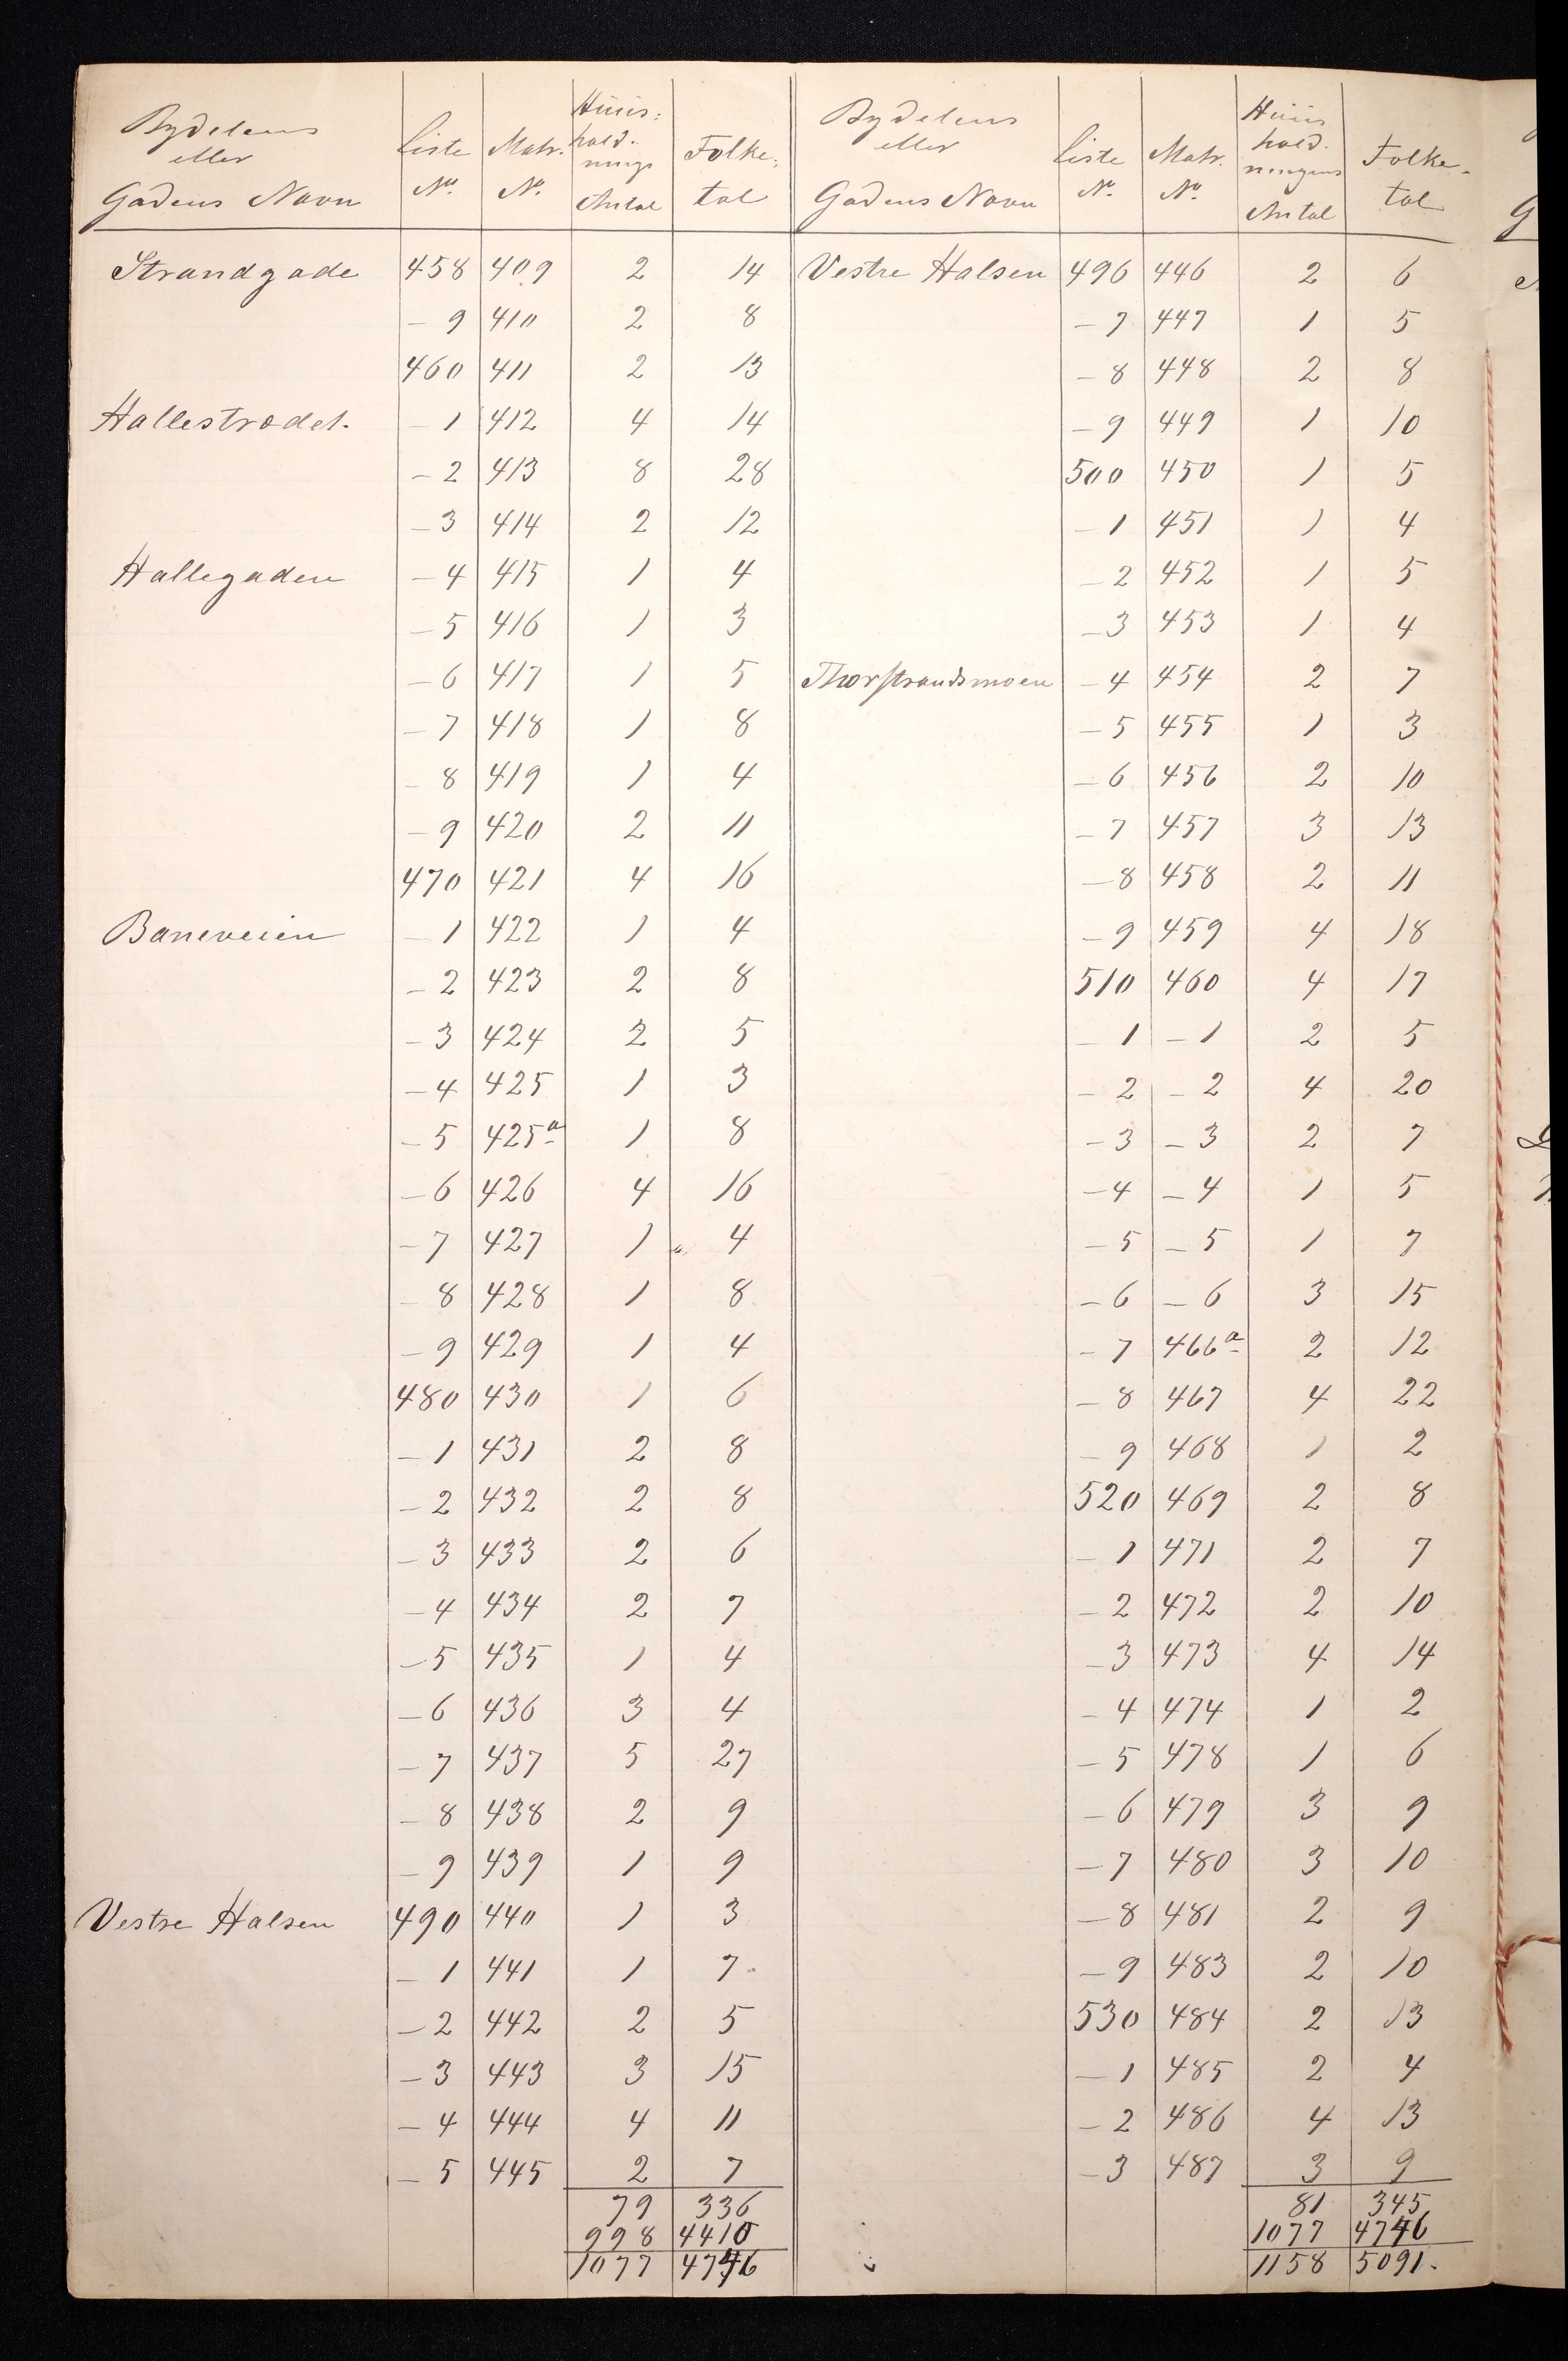 Bydelens eller Gadens Navn | Liste No. | Matr. No. | Huus: hold. nings Antal | Folke: tal
Strandgade 458 409 2 14
– 9 410 2 8
460 411 2 13
Hallestrædet. – 1 412 4 14
– 2 413 8 28
– 3 414 2 12
Hallegaden – 4 415 1 4
– 5 416 1 3
– 6 417 1 5
– 7 418 1 8
– 8 419 1 4
– 9 420 2 11
470 421 4 16
Baneveien – 1 422 1 4
– 2 423 2 8
– 3 424 2 5
– 4 425 1 3
– 5 425a 1 8
– 6 426 4 16
– 7 427 1 4
– 8 428 1 8
– 9 429 1 4
480 430 1 6
– 1 431 2 8
– 2 432 2 8
– 3 433 2 6
– 4 434 2 7
– 5 435 1 4
– 6 436 3 4
– 7 437 5 27
– 8 438 2 9
– 9 439 1 9
Vestre Halsen 490 440 1 3
– 1 441 1 7
– 2 442 2 5
– 3 443 3 15
– 4 444 4 11
– 5 445 2 7
79 336
998 4410
1077 4746
Bydelens eller Gadens Navn | Liste No. | Matr. No. | Huus hold. ningens Antal | Folke- tal
Vestre Halsen 496 446 2 6
– 7 447 1 5
– 8 448 2 8
– 9 449 1 10
500 450 1 5
– 1 451 1 4
– 2 452 1 5
– 3 453 1 4
Thorstrandsmoen – 4 454 2 7
– 5 455 1 3
– 6 456 2 10
– 7 457 3 13
– 8 458 2 11
– 9 459 4 18
510 460 4 17
– 1 – 1 2 5
– 2 – 2 4 20
– 3 – 3 2 7
– 4 – 4 1 5
– 5 – 5 1 7
– 6 – 6 3 15
– 7 466a 2 12
– 8 467 4 22
– 9 468 1 2
520 469 2 8
– 1 471 2 7
– 2 472 2 10
– 3 473 4 14
– 4 474 1 2
– 5 478 1 6
– 6 479 3 9
– 7 480 3 10
– 8 481 2 9
– 9 483 2 10
530 484 2 13
– 1 485 2 4
– 2 486 4 13
– 3 487 3 9
81 345
1077 4746
1158 5091.